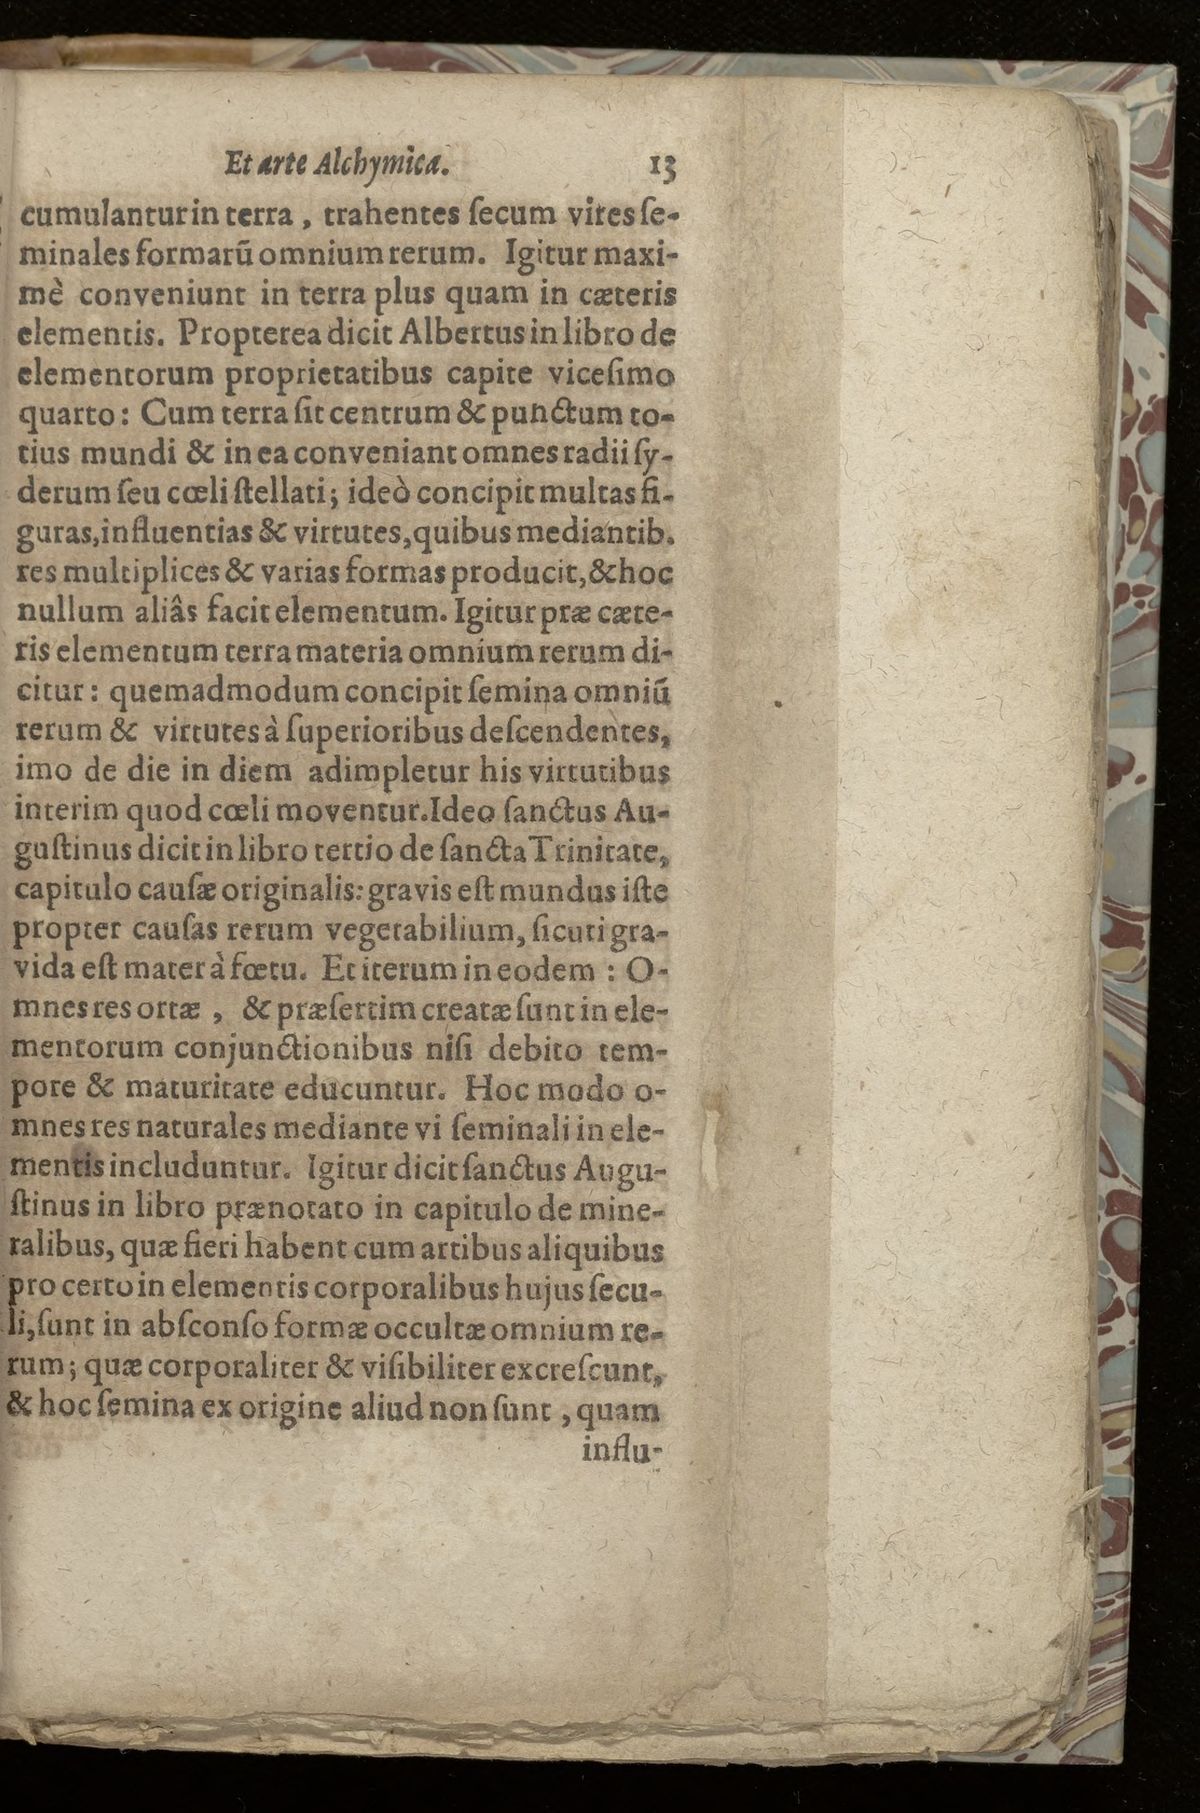 Et arte Alchymica. 13
cumulantur in terra, trahentes ſecum vires ſe-
minales formarū omnium rerum. Igitur maxi-
mè conveniunt in terra plus quam in cæteris
elementis. Propterea dicit Albertus in libro de
elementorum proprietatibus capite viceſimo
quarto: Cum terra ſit centrum & punctum to-
tius mundi & in ea conveniant omnes radii ſy-
derum ſeu cœli ſtellati; ideò concipit multas fi-
guras, influentias & virtutes, quibus mediantib.
res multiplices & varias formas producit, & hoc
nullum aliâs facit elementum. Igitur præ cæte-
ris elementum terra materia omnium rerum di-
citur: quemadmodum concipit ſemina omniū
rerum & virtutes à ſuperioribus deſcendentes,
imo de die in diem adimpletur his virtutibus
interim quod cœli moventur. Ideo ſanctus Au-
guſtinus dicit in libro tertio de ſancta Trinitate,
capitulo cauſæ originalis: gravis eſt mundus iſte
propter cauſas rerum vegetabilium, ſicuti gra-
vida eſt mater à fœtu. Et iterum in eodem: O-
mnes res ortæ, & præſertim creatæ ſunt in ele-
mentorum conjunctionibus niſi debito tem-
pore & maturitate educuntur. Hoc modo o-
mnes res naturales mediante vi ſeminali in ele-
mentis includuntur. Igitur dicit ſanctus Augu-
ſtinus in libro prænotato in capitulo de mine-
ralibus, quæ fieri habent cum artibus aliquibus
pro certo in elementis corporalibus hujus ſecu-
li, ſunt in abſconſo formæ occultæ omnium re-
rum; quæ corporaliter & viſibiliter excreſcunt,
& hoc ſemina ex origine aliud non ſunt, quam
influ-